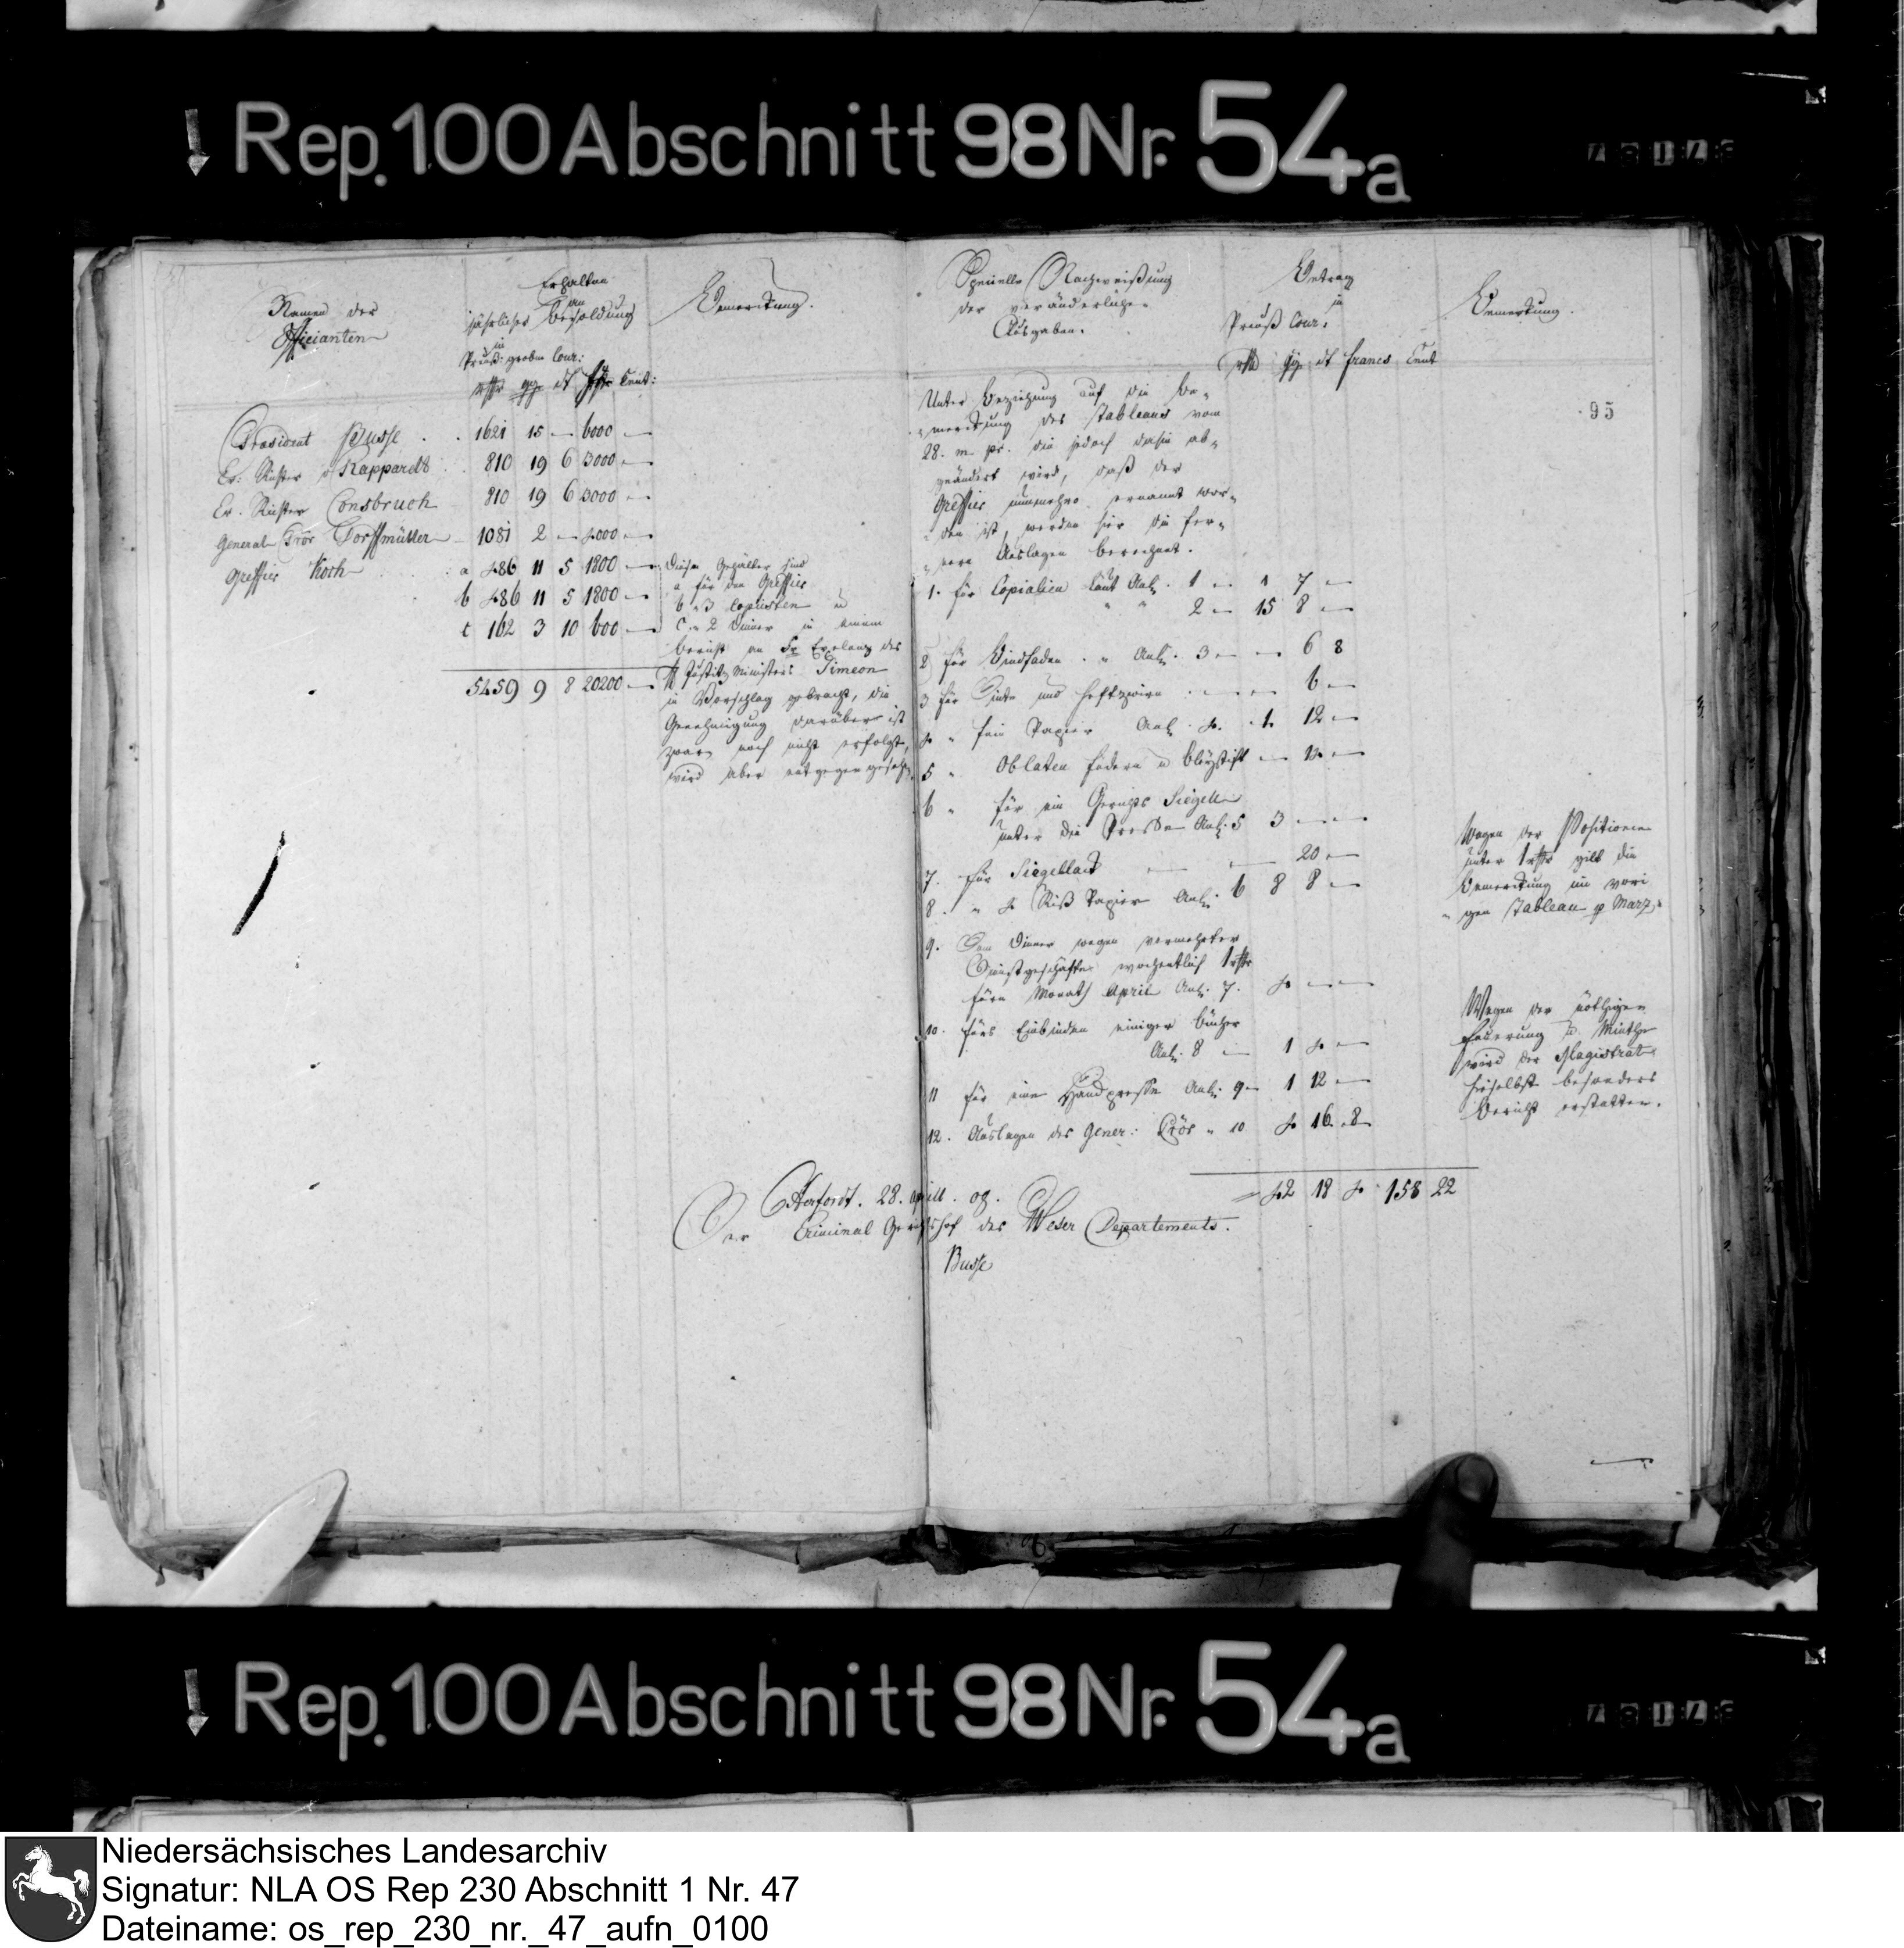 Rep. 100 Abschnitt 98 Nr. 54a
Namen der
Officianten
Erhalten
an
jährlicher Besoldung
in
Preuß: grobn Cour:
rthlr ggr d Cent:
Bemerkung.
Praesident Busse 1621 15 — 6000 —
Cr: Richter v Rappardt 810 19 6 3000 —
Cr. Richter Consbruch 810 19 6 3000 —
General Pror Dorffmüller 1081 2 — 4000 —
Greffier Koch a 486 11 5 1800 —
b 486 11 5 1800 —
c 162 3 10 600 —
5459 9 8 20200 —
Diese Gehälter sind
a für den Greffier
b " 3 Copiisten u
c " 2 Diener in einem
Bericht an Sr Excelenz des
H Justitz Ministers Simeon
in Vorschlag gebracht, die
Genehmigung darüber ist
zwar noch nicht erfolgt,
wird aber entgegen gesehn,
Specielle Nachweißung
der veränderlichen
Ausgaben.
Betrag
in
Preuß Cour.
rthl ggr d francs Cent
Bemerkung.
95
Unter Beziehung auf die Be-
merkung des Tableaus vom
28. m. pr. die jedoch dahin ab-
geändert wird, daß der
Greffier nunmehro ernannt wor-
den ist, werden hier die fer-
nere Auslagen berechnet.
1. für Copialien laut Anl. 1 — 1 7 —
" " 2 — 15 8 —
2 für Bindfaden " Anl. 3 — — 6 8
3 für Dinte und Heftzwirn — — 6 —
4 " fein Papier Anl. 4. 1. 12 —
5 " Oblaten federn u Bleystift — 12 —
6 " für ein Gerichts Siegell
unter die Presse Anl. 5 3 — —
7. für Siegellack — 20 —
8. " 4 Riß Papier Anl. 6 8 8 —
9. Dem Diener wegen vermehrter
Dienstgeschäfte wochentlich 1 rthlr
fürn Monath April Anl. 7. 4 — —
10. fürs Einbinden einiger Bücher
Anl. 8 — 1 4 —
11 für eine Handpresse Anl. 9 — 1 12 —
12. Auslagen des Gener: Pror " 10 4 16. 8
42 18 4 158 22
Wegen der Positionen
unter 1 rthlr gilt die
Bemerkung im vori
gen Tableau p Marz.
Wegen der nöthigen
Feuerung u. Miethe
wird der Magistrat
hieselbst besonders
Bericht erstatten.
Herford. 28. april. 08.
Der Criminal Gerichtshof des Weser Departements.
Busse
Rep. 100 Abschnitt 98 Nr. 54a
Niedersächsisches Landesarchiv
Signatur: NLA OS Rep 230 Abschnitt 1 Nr. 47
Dateiname: os_rep_230_nr._47_aufn_0100